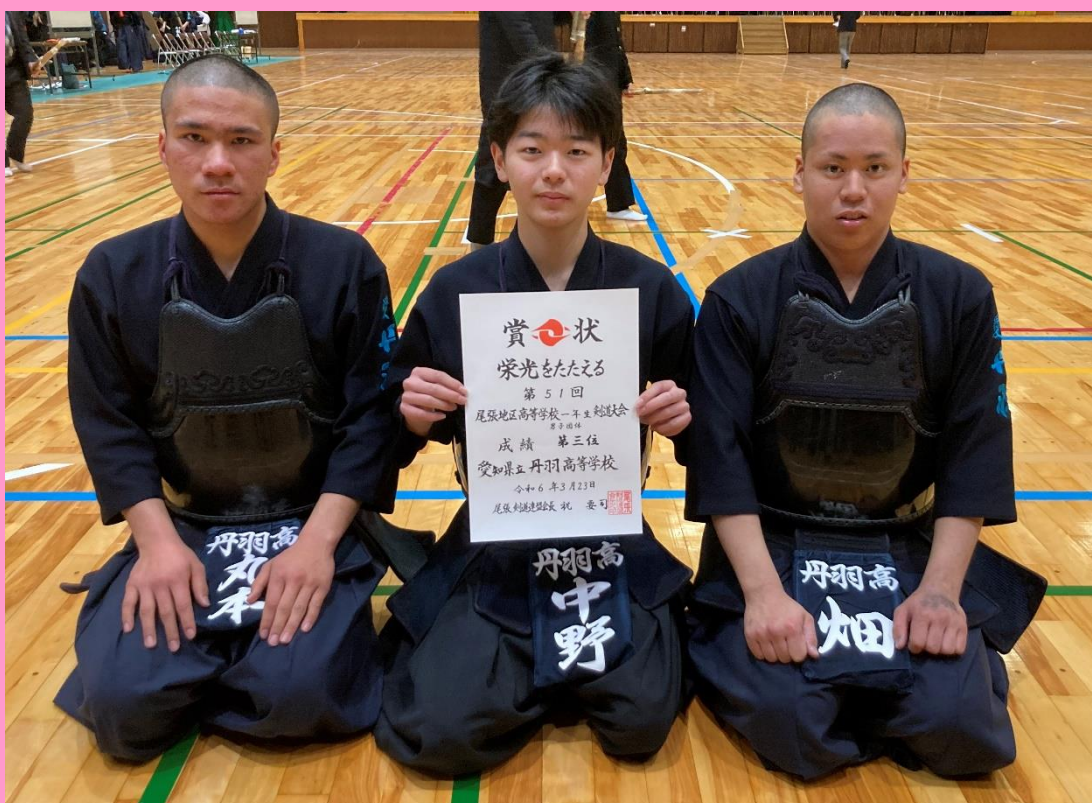 賞状
栄光をたたえる
第51回
尾張地区高等学校一年生剣道大会
男子団体
成績 第三位
愛知県立丹羽高等学校
令和6年3月23日
尾張剣道連盟会長 祝 要司
丹羽高
丸本
丹羽高
中野
丹羽高
畑